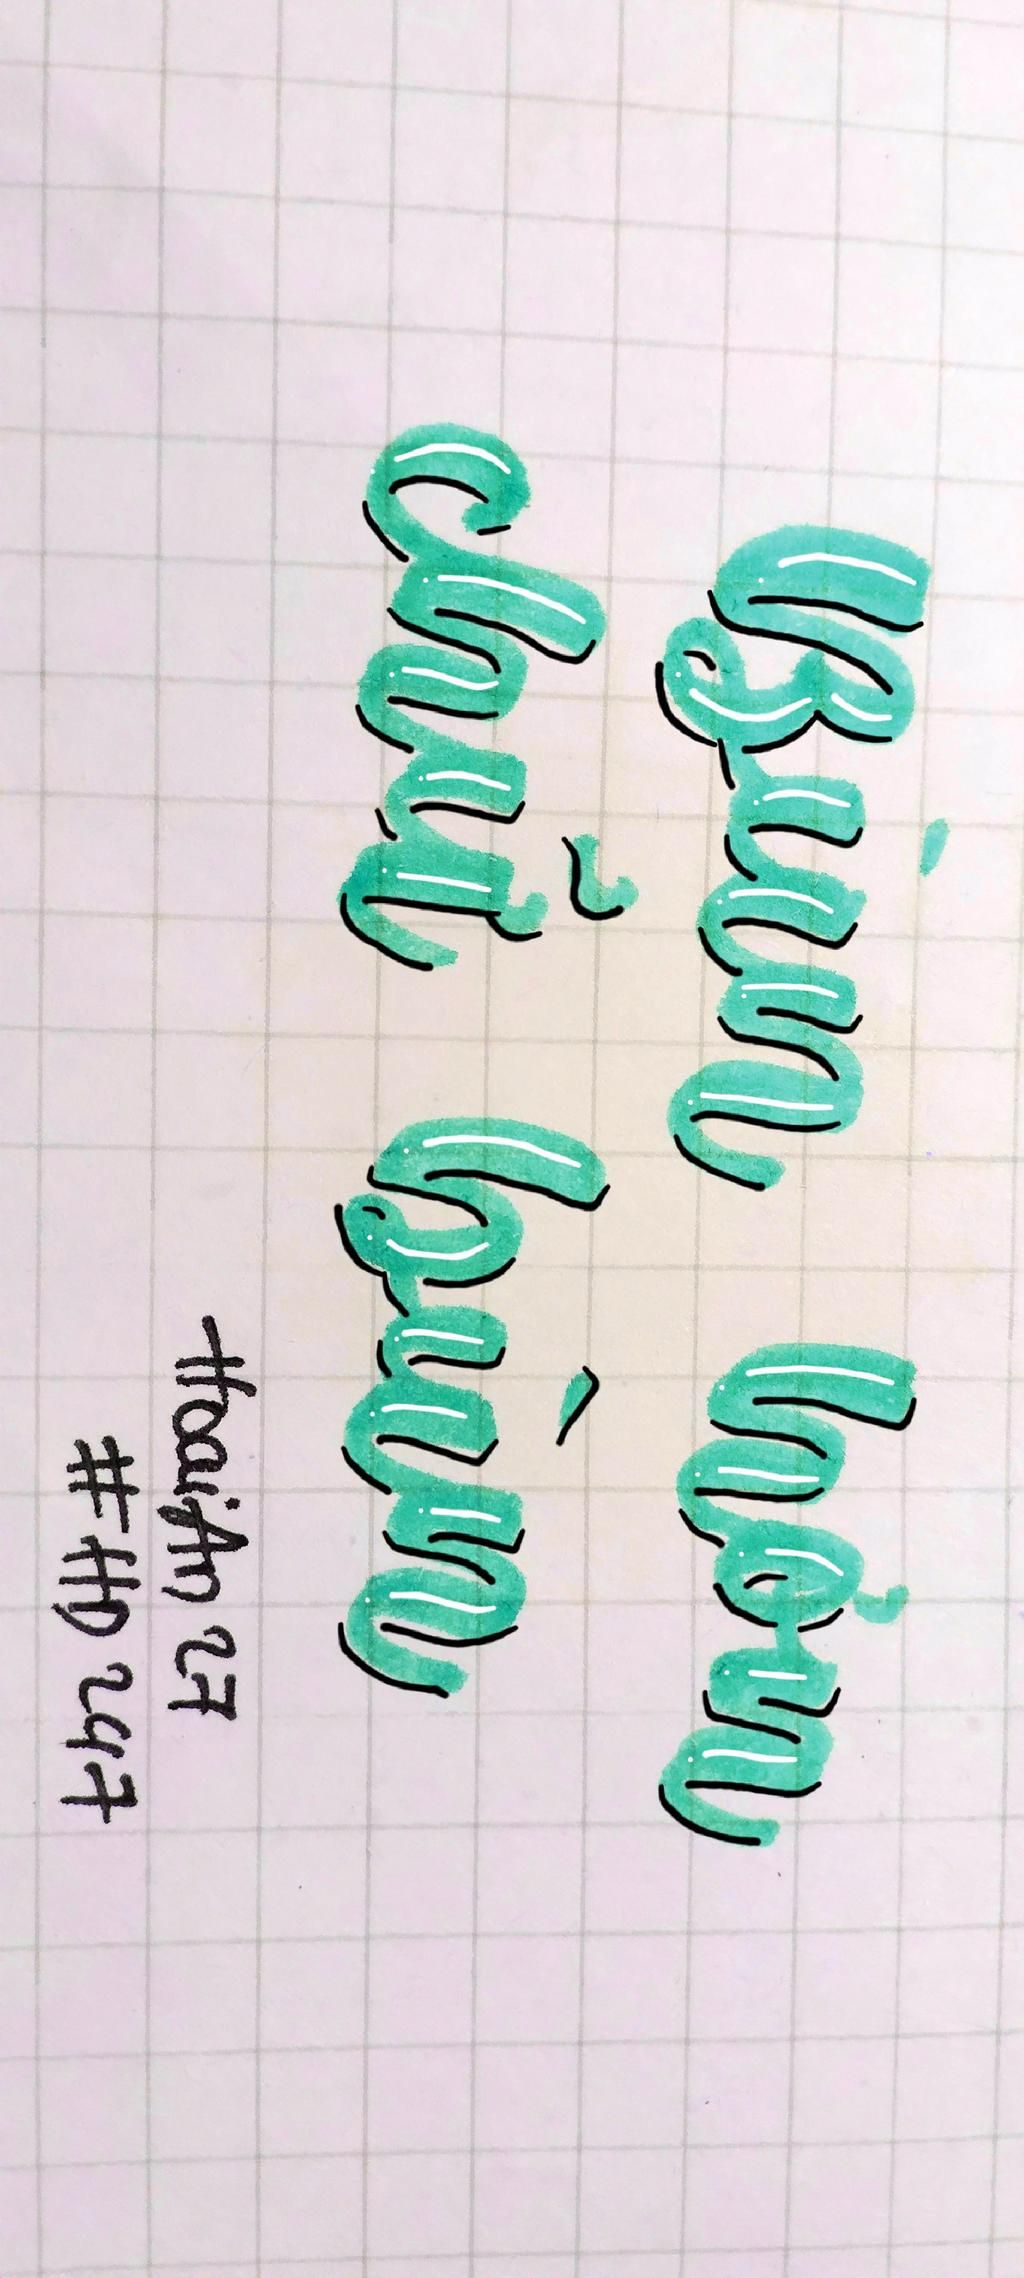 Bùn hơn
chữ bùn
HoaiAn 27
#HD 247